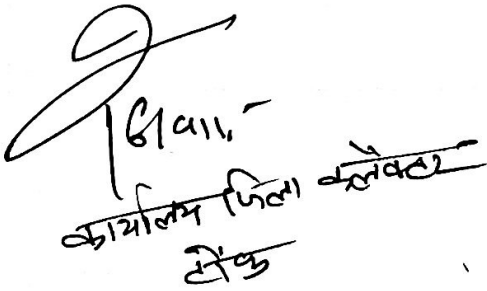 कार्यालय जिला कलैक्टर
टोंक